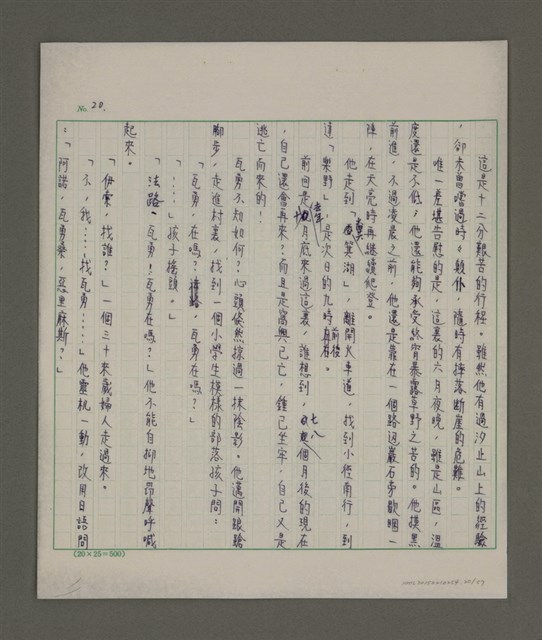 No. 20.
這是十二分艱苦的行程。雖然他有過汐止山上的經驗
，卻未曾嚐過時時顛仆，隨時有摔落斷崖的危難。
唯一差堪告慰的是，這裏的六月夜晚，雖是山區，溫
度還是不低；他還能夠承受終宵暴露草野之苦的。他摸黑
前進，不過凌晨之前，他還是靠在一個路邊巖石旁歇睏一
陣，在天亮時再繼續起登。
他走到「真笑湖」，離開火車道，找到小徑南行，到
達「樂野」是次日的九時前後。
前回是臘月底來過這裏，誰想到，七八個月後的現在
，自己還會再來？而且是窩興已亡，鍾己坐牢，自己又是
逃亡而來的！
瓦勇不知如何？心頭倏然掠過一抹陰影。他邁開踉蹌
腳步，走進村裏，找到一個小學生模樣的部落孩子問：
「瓦勇，在嗎？法路，瓦勇在嗎？」
「⋯⋯」孩子搖頭。
「法路，瓦勇！瓦勇在嗎⋯⋯」他不能自抑地昂聲呼喊
起來。
「伊索，找誰？」一個三十來歲婦人走過來。
「不，我⋯⋯找瓦勇⋯⋯」他靈机一動，改用日語問
：「阿諾，瓦勇桑，惡里麻斯？」
(20×25=500)